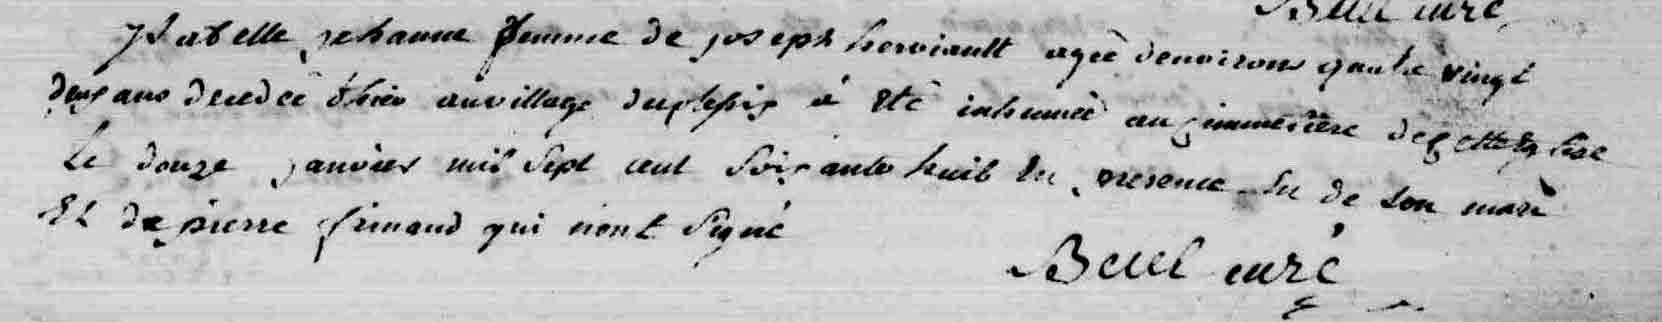 curé
ysabelle jehanne femme de joseph herviault agée denvirons quatre vingt
deux ans decedée d'hier au village duplessis a été inhumée au cimmetiere de cette Eglise
Le douze janvier mil sept cent soixante huit En presence de son mari
Et de pierre qui n'ont signé
curé